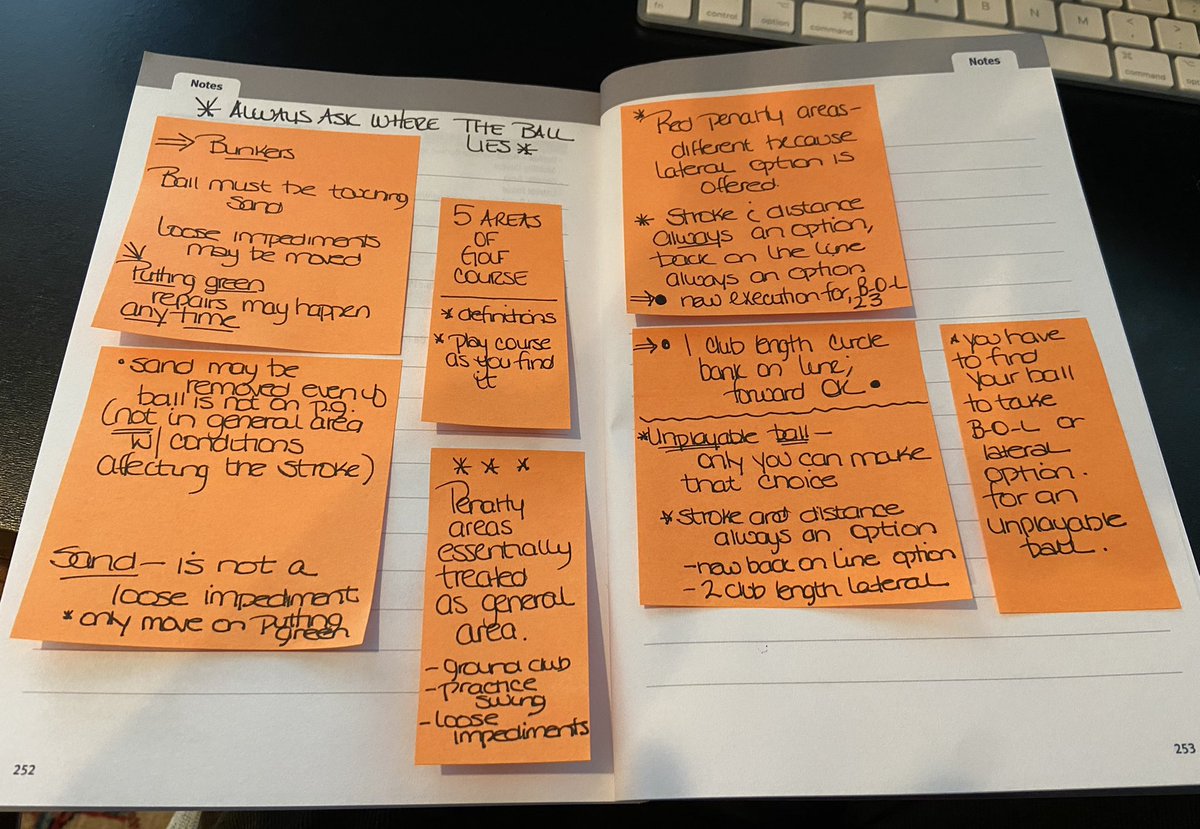 Notes
* ALWAYS ASK WHERE THE BALL
LIES *
⇒ Bunkers
Ball must be touching
sand
loose impediments
may be moved
Putting green
repairs may happen
any-time
• sand may be
removed even if
ball is not on p.g.
(not in general area
w/ conditions
affecting the stroke)
Sand - is not a
loose impediment
* only move on Putting
green
5 AREAS
OF
GOLF
COURSE
* definitions
* Play course
as you find
it
* * *
Penalty
areas
essentially
treated
as general
area.
- ground club
- practice
swing
- loose
impediments
252
Notes
* Red penalty areas-
different because
lateral option is
offered.
* Stroke & distance
always an option,
back on the line
always an option
⇒• new execution for, B-O-L
23
⇒• 1 club length circle
back on line;
forward OK •
* Unplayable ball -
only you can make
that choice
* Stroke and distance
always an option
- new back on line option
- 2 club length lateral
* you have
to find
your ball
to take
B-O-L or
lateral
option.
for an
unplayable
ball.
253
fn
control
option
command
B
N
M
<
,
>
.
command